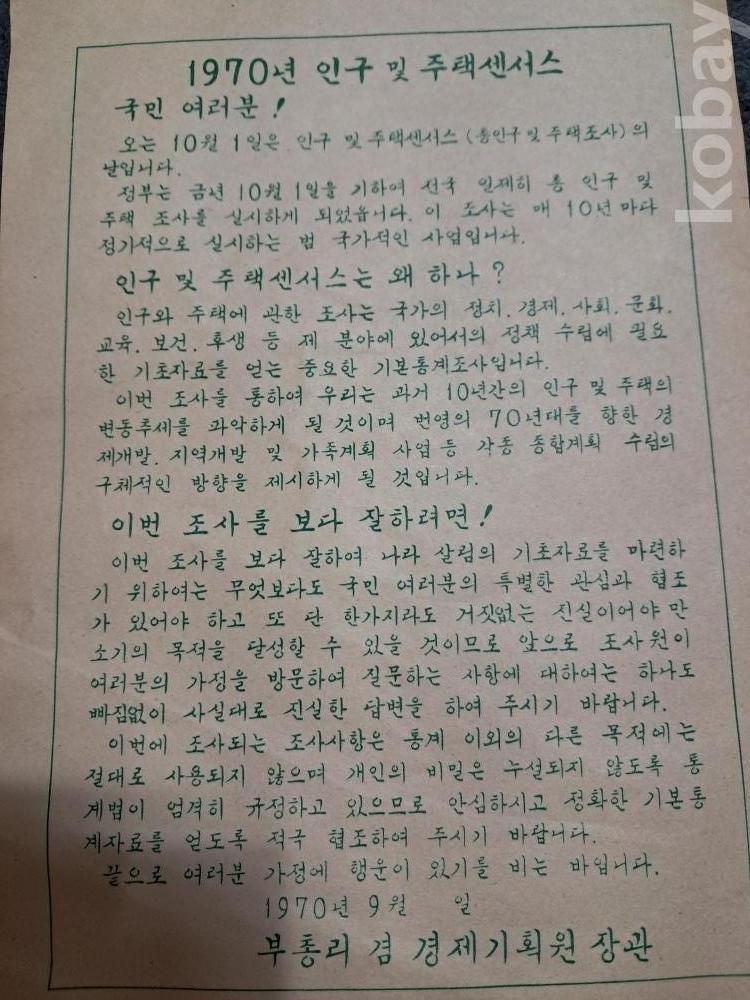 1970년 인구 및 주택센서스
국민 여러분!
오는 10월 1일은 인구 및 주택센서스 (총인구 및 주택조사)의
날입니다.
정부는 금년 10월 1일을 기하여 전국 일제히 총 인구 및
주택 조사를 실시하게 되었읍니다. 이 조사는 매 10년 마다
정기적으로 실시하는 범 국가적인 사업입니다.
인구 및 주택센서스는 왜 하나?
인구와 주택에 관한 조사는 국가의 정치. 경제. 사회. 문화.
교육. 보건. 후생 등 제 분야에 있어서의 정책 수립에 필요
한 기초자료를 얻는 중요한 기본통계조사입니다.
이번 조사를 통하여 우리는 과거 10년간의 인구 및 주택의
변동추세를 과악하게 될 것이며 번영의 70년대를 향한 경
제개발. 지역개발 및 가족계획 사업 등 각종 종합계획 수립의
구체적인 방향을 제시하게 될 것입니다.
이번 조사를 보다 잘하려면!
이번 조사를 보다 잘하여 나라 살림의 기초자료를 마련하
기 위하여는 무엇보다도 국민 여러분의 특별한 관심과 협조
가 있어야 하고 또 단 한가지라도 거짓없는 진실이어야 만
소기의 목적을 달성할 수 있을 것이므로 앞으로 조사원이
여러분의 가정을 방문하여 질문하는 사항에 대하여는 하나도
빠짐없이 사실대로 진실한 답변을 하여 주시기 바랍니다.
이번에 조사되는 조사사항은 통계 이외의 다른 목적에는
절대로 사용되지 않으며 개인의 비밀은 누설되지 않도록 통
계법이 엄격히 규정하고 있으므로 안심하시고 정확한 기본통
계자료를 얻도록 적극 협조하여 주시기 바랍니다.
끝으로 여러분 가정에 행운이 있기를 비는 바입니다.
1970년 9월 일
부총리 겸 경제기획원 장관
kobay